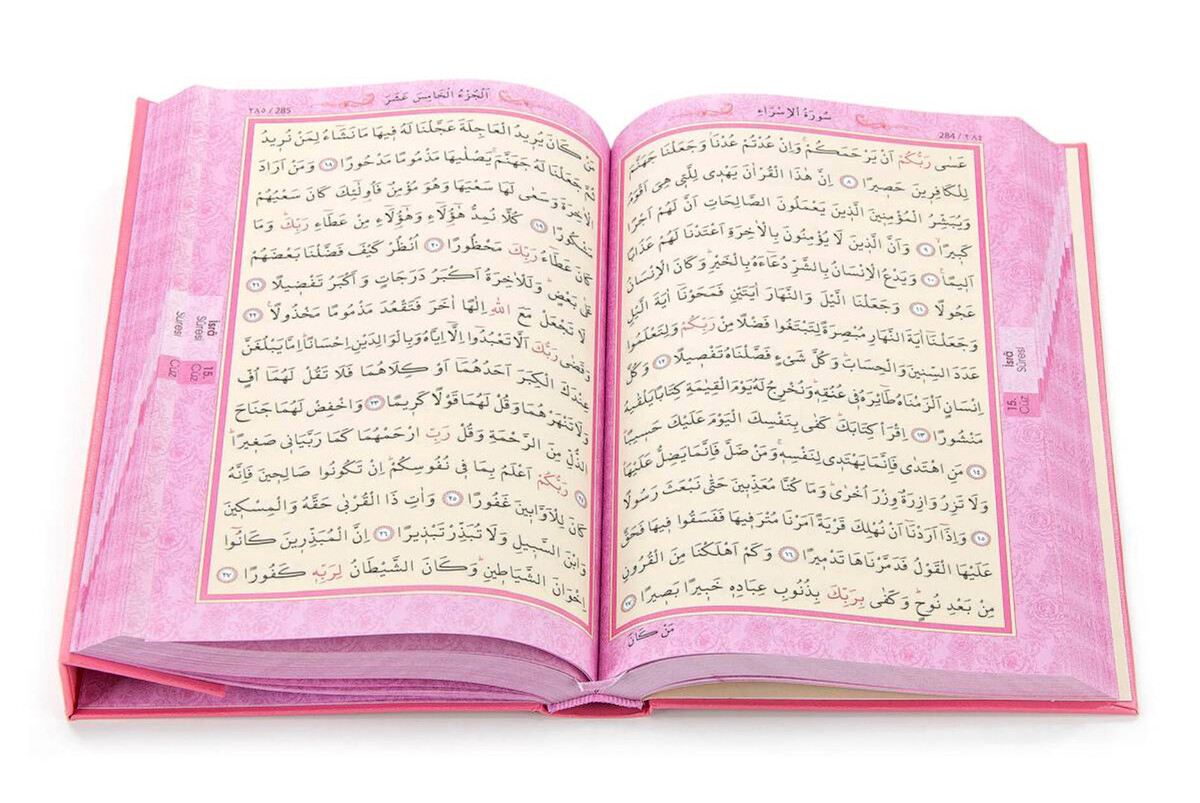 سُورَةُ الْاِسْرَاءِ
284 / ٢٨٤
عَسٰى رَبُّكُمْ اَنْ يَرْحَمَكُمْۚ وَاِنْ عُدْتُمْ عُدْنَاۢ وَجَعَلْنَا جَهَنَّمَ
لِلْكَافِرٖينَ حَصٖيرًا ﴿٨﴾ اِنَّ هٰذَا الْقُرْاٰنَ يَهْدٖى لِلَّتٖى هِىَ اَقْوَمُ
وَيُبَشِّرُ الْمُؤْمِنٖينَ الَّذٖينَ يَعْمَلُونَ الصَّالِحَاتِ اَنَّ لَهُمْ اَجْرًا
كَبٖيرًاۙ ﴿٩﴾ وَاَنَّ الَّذٖينَ لَا يُؤْمِنُونَ بِالْاٰخِرَةِ اَعْتَدْنَا لَهُمْ عَذَابًا
اَلٖيمًا ﴿١٠﴾ وَيَدْعُ الْاِنْسَانُ بِالشَّرِّ دُعَاءَهُ بِالْخَيْرِؕ وَكَانَ الْاِنْسَانُ
عَجُولًا ﴿١١﴾ وَجَعَلْنَا الَّيْلَ وَالنَّهَارَ اٰيَتَيْنِ فَمَحَوْنَا اٰيَةَ الَّيْلِ
وَجَعَلْنَا اٰيَةَ النَّهَارِ مُبْصِرَةً لِتَبْتَغُوا فَضْلًا مِنْ رَبِّكُمْ وَلِتَعْلَمُوا
عَدَدَ السِّنٖينَ وَالْحِسَابَؕ وَكُلَّ شَىْءٍ فَصَّلْنَاهُ تَفْصٖيلًا ﴿١٢﴾ وَكُلَّ
اِنْسَانٍ اَلْزَمْنَاهُ طَٓائِرَهُ فٖى عُنُقِهٖؕ وَنُخْرِجُ لَهُ يَوْمَ الْقِيٰمَةِ كِتَابًا يَلْقٰيهُ
مَنْشُورًا ﴿١٣﴾ اِقْرَأْ كِتَابَكَؕ كَفٰى بِنَفْسِكَ الْيَوْمَ عَلَيْكَ حَسٖيبًاؕ
﴿١٤﴾ مَنِ اهْتَدٰى فَاِنَّمَا يَهْتَدٖى لِنَفْسِهٖۚ وَمَنْ ضَلَّ فَاِنَّمَا يَضِلُّ عَلَيْهَاؕ
وَلَا تَزِرُ وَازِرَةٌ وِزْرَ اُخْرٰىؕ وَمَا كُنَّا مُعَذِّبٖينَ حَتّٰى نَبْعَثَ رَسُولًا
﴿١٥﴾ وَاِذَٓا اَرَدْنَٓا اَنْ نُهْلِكَ قَرْيَةً اَمَرْنَا مُتْرَفٖيهَا فَفَسَقُوا فٖيهَا فَحَقَّ
عَلَيْهَا الْقَوْلُ فَدَمَّرْنَاهَا تَدْمٖيرًا ﴿١٦﴾ وَكَمْ اَهْلَكْنَا مِنَ الْقُرُونِ
مِنْ بَعْدِ نُوحٍؕ وَكَفٰى بِرَبِّكَ بِذُنُوبِ عِبَادِهٖ خَبٖيرًا بَصٖيرًا ﴿١٧﴾
مَنْ كَانَ
İsrâ
Sûresi
15.
Cüz
اَلْجُزْءُ الْخَامِسَ عَشَرَ
٢٨٥ / 285
مَنْ كَانَ يُرٖيدُ الْعَاجِلَةَ عَجَّلْنَا لَهُ فٖيهَا مَا نَشَٓاءُ لِمَنْ نُرٖيدُ
ثُمَّ جَعَلْنَا لَهُ جَهَنَّمَۚ يَصْلٰيهَا مَذْمُومًا مَدْحُورًا ﴿١٨﴾ وَمَنْ اَرَادَ
الْاٰخِرَةَ وَسَعٰى لَهَا سَعْيَهَا وَهُوَ مُؤْمِنٌ فَاُولٰٓئِكَ كَانَ سَعْيُهُمْ
مَشْكُورًا ﴿١٩﴾ كُلًّا نُمِدُّ هٰٓؤُلَٓاءِ وَهٰٓؤُلَٓاءِ مِنْ عَطَٓاءِ رَبِّكَؕ وَمَا
كَانَ عَطَٓاءُ رَبِّكَ مَحْظُورًا ﴿٢٠﴾ اُنْظُرْ كَيْفَ فَضَّلْنَا بَعْضَهُمْ
عَلٰى بَعْضٍؕ وَلَلْاٰخِرَةُ اَكْبَرُ دَرَجَاتٍ وَاَكْبَرُ تَفْضٖيلًا ﴿٢١﴾
لَا تَجْعَلْ مَعَ اللّٰهِ اِلٰهًا اٰخَرَ فَتَقْعُدَ مَذْمُومًا مَخْذُولًاؕ ﴿٢٢﴾
وَقَضٰى رَبُّكَ اَلَّا تَعْبُدُٓوا اِلَّٓا اِيَّاهُ وَبِالْوَالِدَيْنِ اِحْسَانًاؕ اِمَّا يَبْلُغَنَّ
عِنْدَكَ الْكِبَرَ اَحَدُهُمَٓا اَوْ كِلَاهُمَا فَلَا تَقُلْ لَهُمَٓا اُفٍّ
وَلَا تَنْهَرْهُمَا وَقُلْ لَهُمَا قَوْلًا كَرٖيمًا ﴿٢٣﴾ وَاخْفِضْ لَهُمَا جَنَاحَ
الذُّلِّ مِنَ الرَّحْمَةِ وَقُلْ رَبِّ ارْحَمْهُمَا كَمَا رَبَّيَانٖى صَغٖيرًاؕ
﴿٢٤﴾ رَبُّكُمْ اَعْلَمُ بِمَا فٖى نُفُوسِكُمْؕ اِنْ تَكُونُوا صَالِحٖينَ فَاِنَّهُ
كَانَ لِلْاَوَّابٖينَ غَفُورًا ﴿٢٥﴾ وَاٰتِ ذَا الْقُرْبٰى حَقَّهُ وَالْمِسْكٖينَ
وَابْنَ السَّبٖيلِ وَلَا تُبَذِّرْ تَبْذٖيرًا ﴿٢٦﴾ اِنَّ الْمُبَذِّرٖينَ كَانُٓوا
اِخْوَانَ الشَّيَاطٖينِؕ وَكَانَ الشَّيْطَانُ لِرَبِّهٖ كَفُورًا ﴿٢٧﴾
İsrâ
Sûresi
Sûresi
15.
Cüz
Cüz